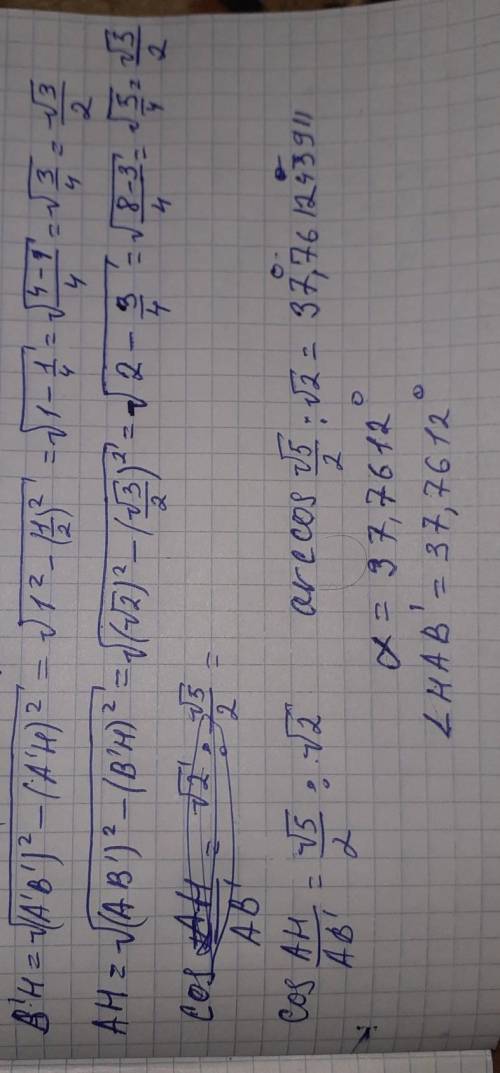 B'H = √((A'B')² − (A'H)²) = √(1² − (1/2)²) = √(1 − 1/4) = √((4−1)/4) = √(3/4) = √3/2
AH = √((AB')² − (B'H)²) = √((√2)² − (√3/2)²) = √(2 − 3/4) = √((8−3)/4) = √(5/4) = √3/2
cos AH/AB' = √2 : √5/2 =
cos AH/AB' = √5/2 : √2 arccos √5/2 : √2 = 37,7612439°
α = 37,7612°
∠HAB' = 37,7612°